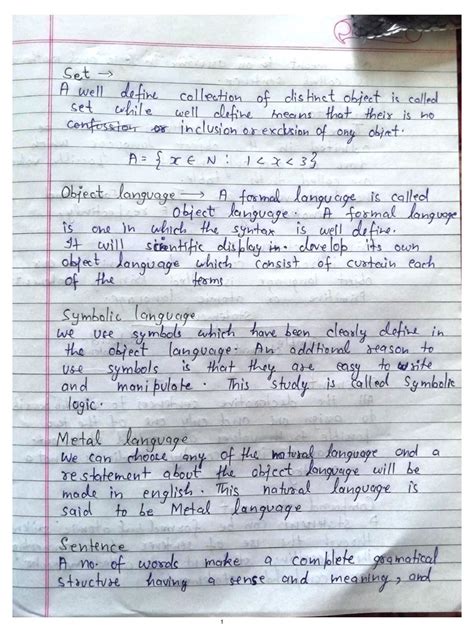 Set →
A well define collection of distinct object is called
set while well define means that their is no
confussion or inclusion or exclusion of any object.
A = { x ∈ N : 1 < x < 3}
Object language → A formal language is called
Object language. A formal language
is one in which the syntax is well define.
It will scientific display in develop its own
object language which consist of curtain each
of the terms
Symbolic language
We use symbols which have been clearly define in
the object language. An addtional reason to
use symbols is that they are easy to write
and manipulate. This study is called Symbolic
logic.
Metal language
We can choose any of the natural language and a
restatement about the object language will be
made in english. This natural language is
said to be Metal language
Sentence
A no. of words make a complete gramatical
structure having a sense and meaning, and
1